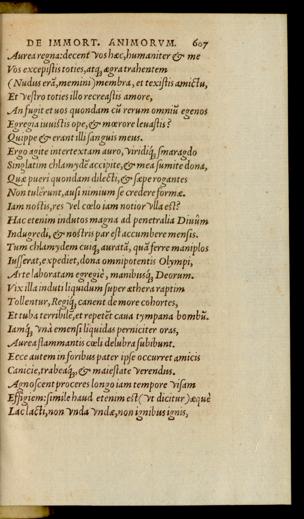 DE IMMORT. ANIMORVM. 607
Aurea regna: decent vos hæc, humaniter & me
Vos excepistis toties, atq; ægra trahentem
(Nudus erā, memini) membra, et texistis amictu,
Et vestro toties illo recreastis amore,
An fugit et uos quondam cū rerum omniū egenos
Egregia iuuistis ope, & mœrore leuastis?
Quippe & erant illi sanguis meus.
Ergo agite intertextam auro, viridiq; smaragdo
Singlatim chlamydē accipite, & mea sumite dona,
Quæ pueri quondam dilecti, & sæpe rogantes
Non tulērunt, ausi nimium se credere formæ.
Iam nostis, res vel cœlo iam notior vlla est?
Hac etenim indutos magna ad penetralia Diuûm
Indugredi, & nostris par est accumbere mensis.
Tum chlamydem cuiq; auratā, quā ferre maniplos
Iusserat, expediet, dona omnipotentis Olympi,
Arte laboratam egregiè, manibusq; Deorum.
Vix illa induti liquidum super æthera raptim
Tollentur, Regiq; canent de more cohortes,
Et tuba terribilē, et repetēt caua tympana bombū.
Iamq; vnà emensi liquidas perniciter oras,
Aurea flammantis cœli delubra subibunt.
Ecce autem in foribus pater ipse occurret amicis
Canicie, trabeaq;, & maiestate verendus.
Agnoscent proceres longo iam tempore visam
Effigiem: simile haud etenim est (vt dicitur) æquè
Lac lacti, non vnda vndæ, non ignibus ignis,